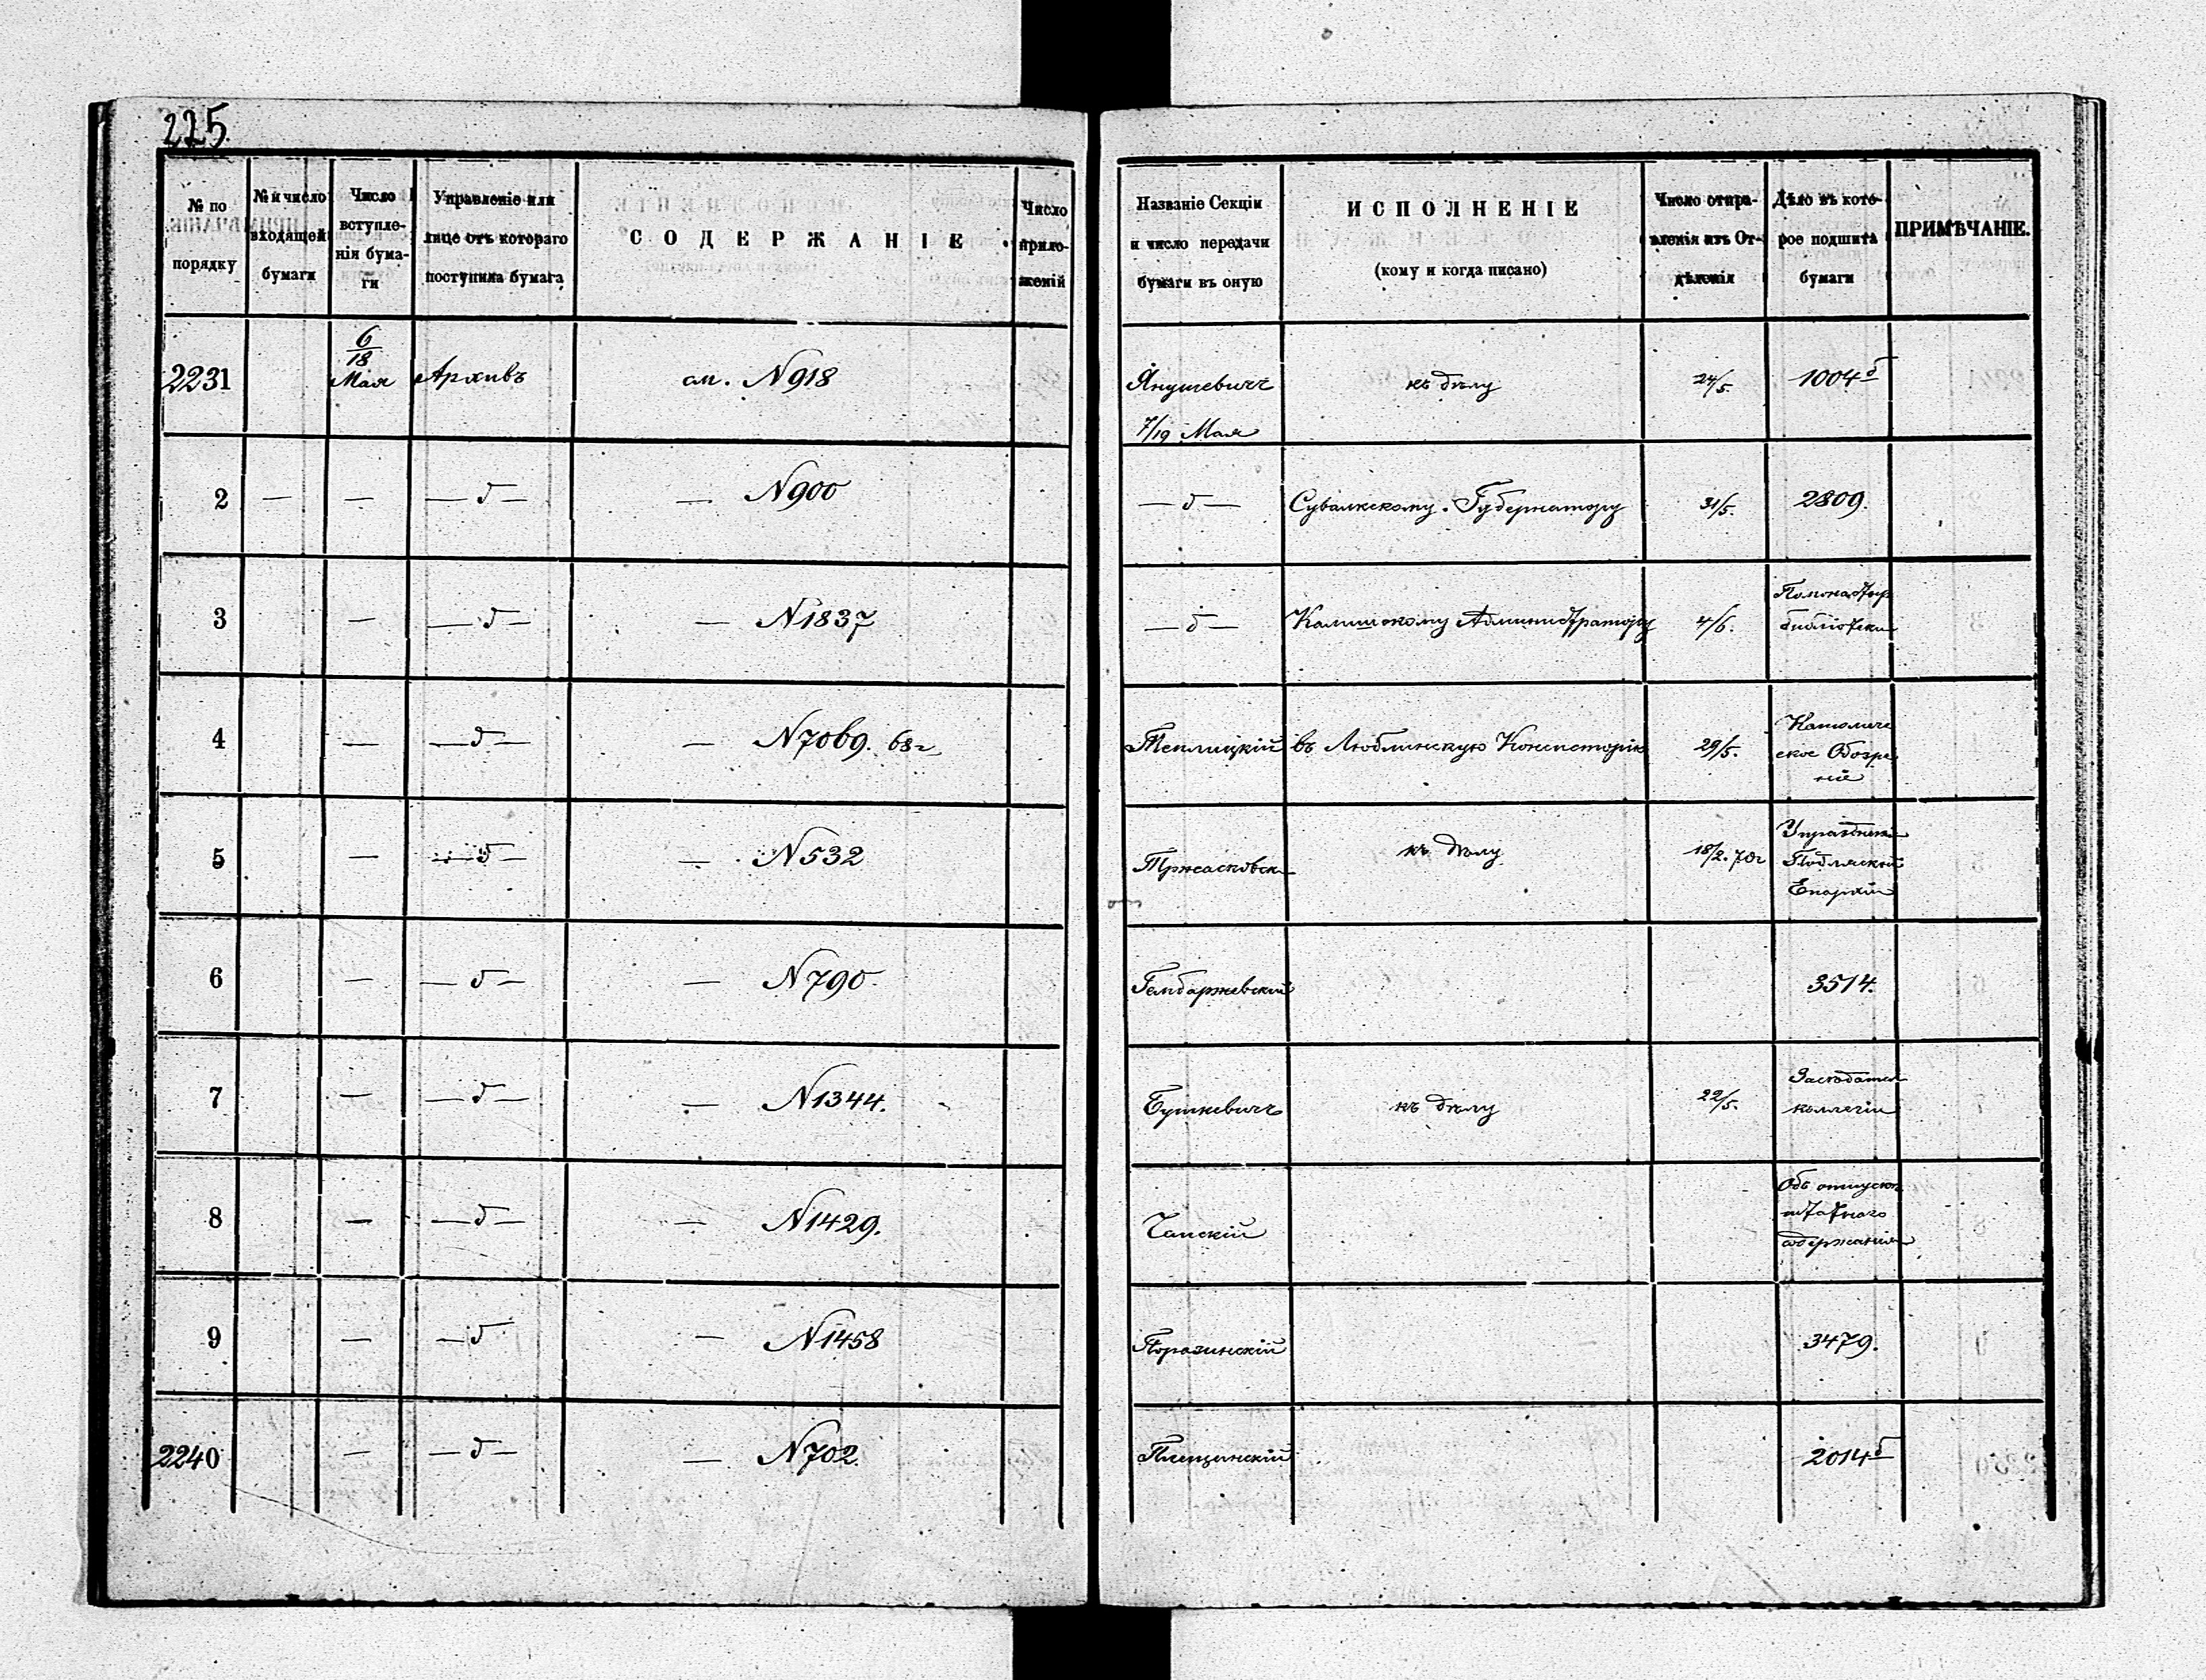 225.
№ по порядку
№ и число входящей бумаги
Число вступле-
нія бума-
ги
Управленіе или
лице отъ котораго
поступила бумага
СОДЕРЖАНІЕ
Число
прило-
женій
Названіе Секціи
и число передачи
бумаги въ оную
ИСПОЛНЕНІЕ
(кому и когда писано)
Число отпра-
вленія изъ От-
дѣленія
Дѣло въ кото-
рое подшита
бумаги
ПРИМѢЧАНІЕ.
2231 6/18 Мая Архивъ см. N918 Янушевичъ 7/19 Мая къ дѣлу 24/5. 1004б
2 — — — д — — N900 — д — Сувалкскому Губернатору 31/5. 2809.
3 — — д — — N1837 — д — Калишскому Администратору 4/6. библіотеки
4 — — д — — N7069. 68г Теплицкій въ Люблинскую Консисторію 29/5. Католиче
ское Обозрѣ
ніе
5 — — д — — N532 къ дѣлу 18/2. 70г Подляской
Епархіи
6 — — д — — N790. Гембаржевскій 3514.
7 — — д — — N1344. Буткевичъ къ дѣлу 22/5. коллегіи
8 — — д — — N1429. Чапскій Объ отпускѣ
штатнаго
содержанія
9 — — д — N1458 Поразинскій 3479.
2240 — — д — — N702. Плещинскій 2014б